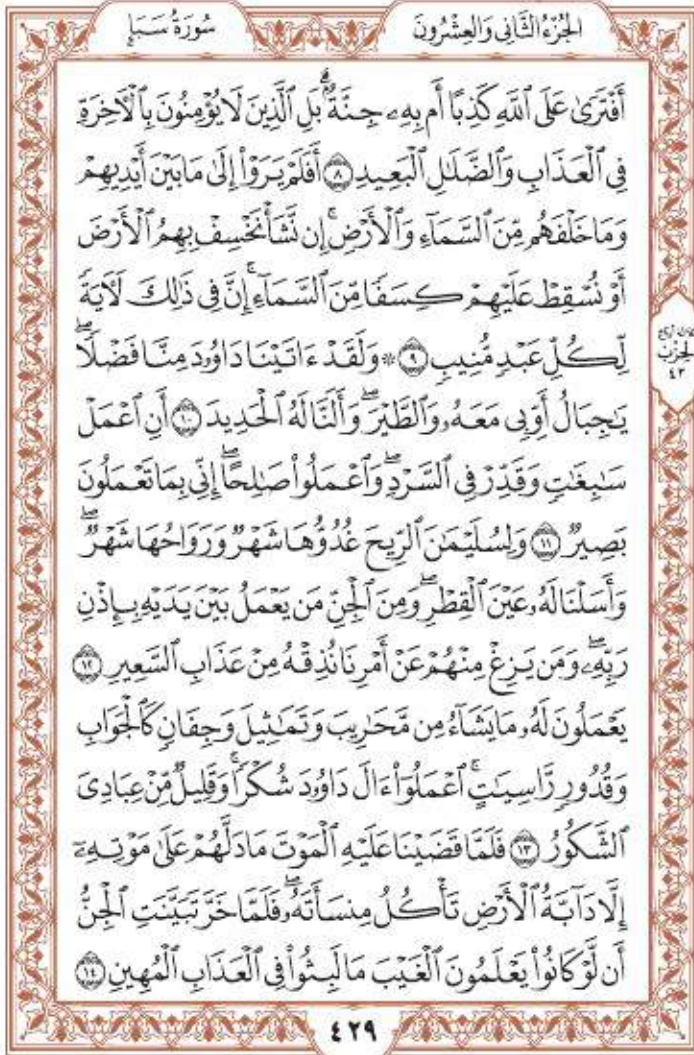 الجُزْءُ الثَّانِي وَالعِشْرُونَ
سُورَةُ سَبَإٍ
أَفْتَرَىٰ عَلَى ٱللَّهِ كَذِبًا أَم بِهِۦ جِنَّةٌۢ ۗ بَلِ ٱلَّذِينَ لَا يُؤْمِنُونَ بِٱلْأَخِرَةِ
فِى ٱلْعَذَابِ وَٱلضَّلَٰلِ ٱلْبَعِيدِ ۝٨ أَفَلَمْ يَرَوْا۟ إِلَىٰ مَا بَيْنَ أَيْدِيهِمْ
وَمَا خَلْفَهُم مِّنَ ٱلسَّمَآءِ وَٱلْأَرْضِ ۚ إِن نَّشَأْ نَخْسِفْ بِهِمُ ٱلْأَرْضَ
أَوْ نُسْقِطْ عَلَيْهِمْ كِسَفًا مِّنَ ٱلسَّمَآءِ ۚ إِنَّ فِى ذَٰلِكَ لَأٓيَةً
لِّكُلِّ عَبْدٍ مُّنِيبٍ ۝٩ ۞ وَلَقَدْ ءَاتَيْنَا دَاوُۥدَ مِنَّا فَضْلًا ۖ
يَٰجِبَالُ أَوِّبِى مَعَهُۥ وَٱلطَّيْرَ ۖ وَأَلَنَّا لَهُ ٱلْحَدِيدَ ۝١٠ أَنِ ٱعْمَلْ
سَٰبِغَٰتٍ وَقَدِّرْ فِى ٱلسَّرْدِ ۖ وَٱعْمَلُوا۟ صَٰلِحًا ۖ إِنِّى بِمَا تَعْمَلُونَ
بَصِيرٌ ۝١١ وَلِسُلَيْمَٰنَ ٱلرِّيحَ غُدُوُّهَا شَهْرٌ وَرَوَاحُهَا شَهْرٌ ۖ
وَأَسَلْنَا لَهُۥ عَيْنَ ٱلْقِطْرِ ۖ وَمِنَ ٱلْجِنِّ مَن يَعْمَلُ بَيْنَ يَدَيْهِ بِإِذْنِ
رَبِّهِۦ ۖ وَمَن يَزِغْ مِنْهُمْ عَنْ أَمْرِنَا نُذِقْهُ مِنْ عَذَابِ ٱلسَّعِيرِ ۝١٢
يَعْمَلُونَ لَهُۥ مَا يَشَآءُ مِن مَّحَٰرِيبَ وَتَمَٰثِيلَ وَجِفَانٍ كَٱلْجَوَابِ
وَقُدُورٍ رَّاسِيَٰتٍ ۚ ٱعْمَلُوٓا۟ ءَالَ دَاوُۥدَ شُكْرًا ۚ وَقَلِيلٌ مِّنْ عِبَادِىَ
ٱلشَّكُورُ ۝١٣ فَلَمَّا قَضَيْنَا عَلَيْهِ ٱلْمَوْتَ مَا دَلَّهُمْ عَلَىٰ مَوْتِهِۦٓ
إِلَّا دَآبَّةُ ٱلْأَرْضِ تَأْكُلُ مِنسَأَتَهُۥ ۖ فَلَمَّا خَرَّ تَبَيَّنَتِ ٱلْجِنُّ
أَن لَّوْ كَانُوا۟ يَعْلَمُونَ ٱلْغَيْبَ مَا لَبِثُوا۟ فِى ٱلْعَذَابِ ٱلْمُهِينِ ۝١٤
الحِزْب
٤٣
٤٢٩